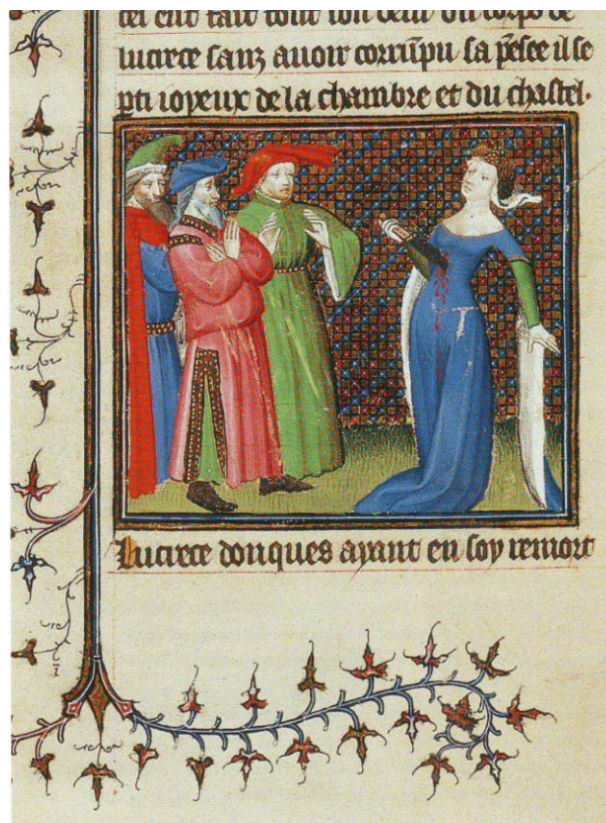 tel eut fait tout son delit du corps de
lucrece sanz auoir corrũpu sa pẽsee il se
pti ioyeux de la chambre et du chastel.
Lucrece donques ayant en soy remort